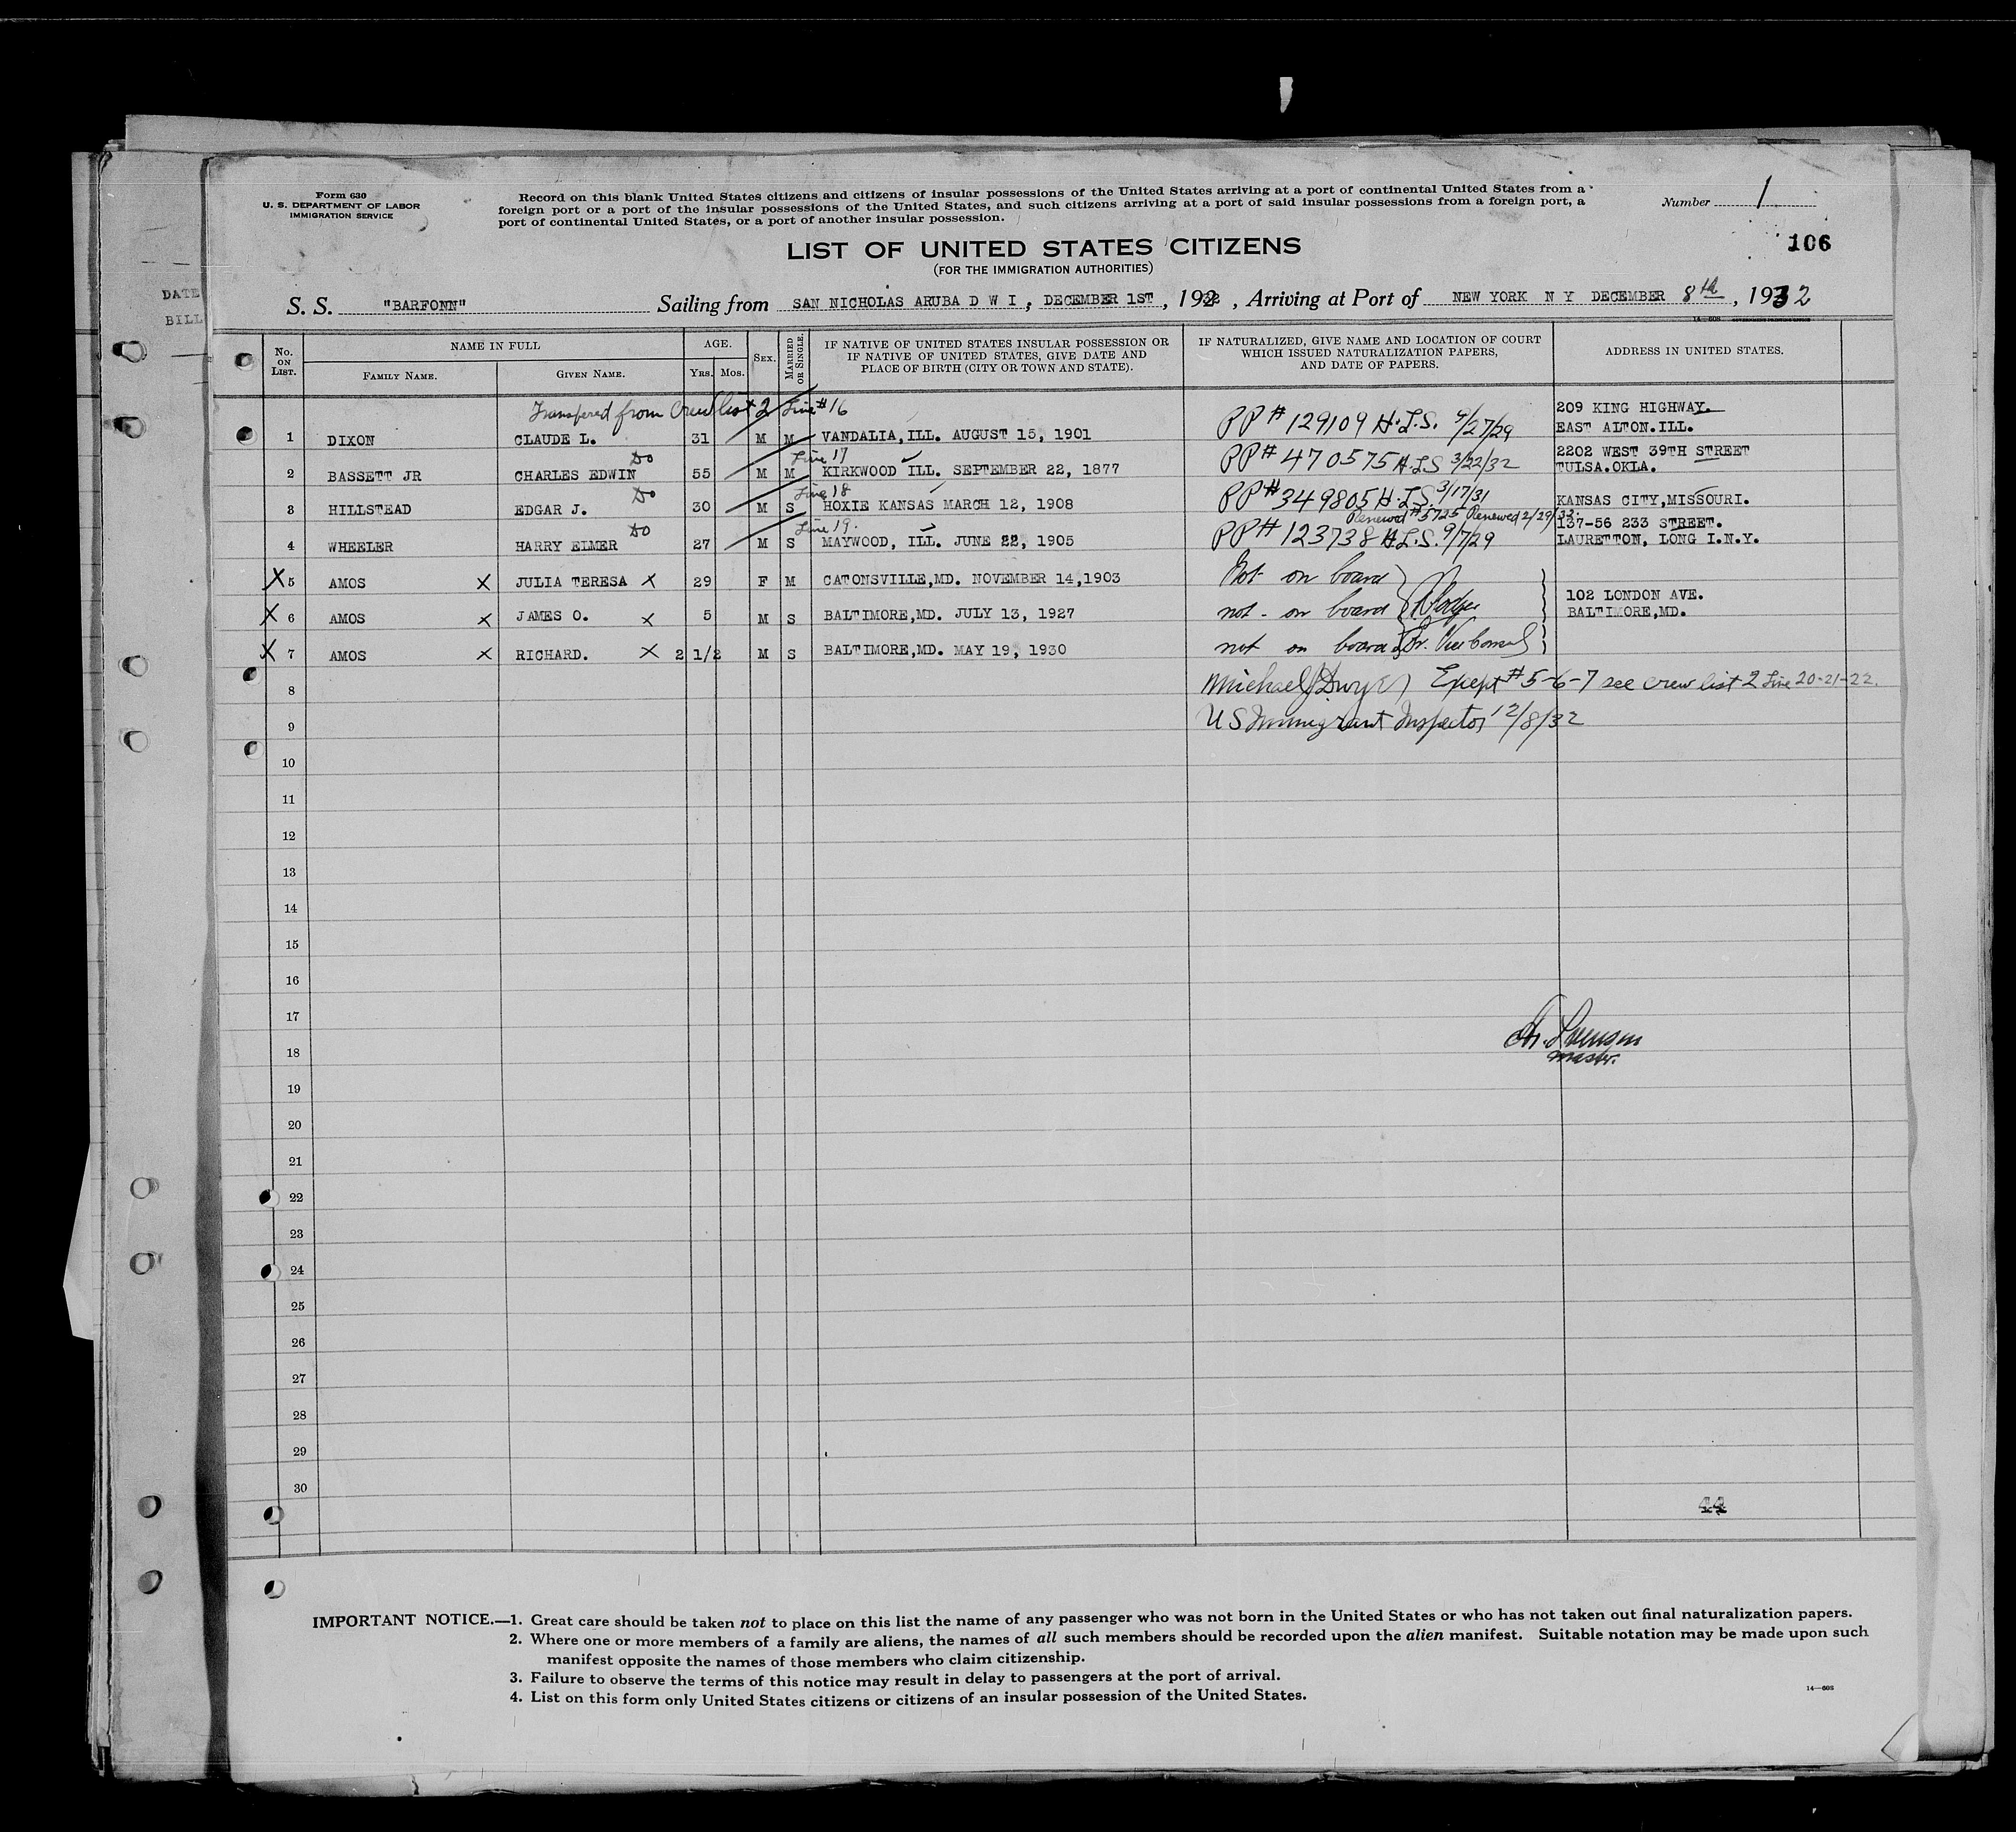 DATE
BILL
Form 630
U. S. DEPARTMENT OF LABOR
IMMIGRATION SERVICE
Record on this blank United States citizens and citizens of insular possessions of the United States arriving at a port of continental United States from a
foreign port or a port of the insular possessions of the United States, and such citizens arriving at a port of said insular possessions from a foreign port, a
port of continental United States, or a port of another insular possession.
Number 1
106
LIST OF UNITED STATES CITIZENS
(FOR THE IMMIGRATION AUTHORITIES)
S. S. "BARFONN" Sailing from SAN NICHOLAS ARUBA D W I, DECEMBER 1ST, 1932, Arriving at Port of NEW YORK N Y DECEMBER 8th, 1932
No. ON LIST. NAME IN FULL AGE. SEX. MARRIED OR SINGLE. IF NATIVE OF UNITED STATES INSULAR POSSESSION OR IF NATIVE OF UNITED STATES, GIVE DATE AND PLACE OF BIRTH (CITY OR TOWN AND STATE). IF NATURALIZED, GIVE NAME AND LOCATION OF COURT WHICH ISSUED NATURALIZATION PAPERS, AND DATE OF PAPERS. ADDRESS IN UNITED STATES.
FAMILY NAME. GIVEN NAME. YRS. MOS.
Transfered from Crew list 2 Line #16
1 DIXON CLAUDE L. 31 M M VANDALIA,ILL. AUGUST 15, 1901 PP# 129109 H.L.S. 4/27/29 209 KING HIGHWAY. EAST ALTON.ILL.
Do Line 17
2 BASSETT JR CHARLES EDWIN 55 M M KIRKWOOD ILL. SEPTEMBER 22, 1877 PP# 470575 H.L.S 3/22/32 2202 WEST 39TH STREET TULSA.OKLA.
Do Line 18
3 HILLSTEAD EDGAR J. 30 M S HOXIE KANSAS MARCH 12, 1908 PP# 349805 H.L.S. 3/17/31 KANSAS CITY,MISSOURI.
Do Line 19. Renewed #5725 Renewed 2/29/32.
4 WHEELER HARRY ELMER 27 M S MAYWOOD, ILL. JUNE 22, 1905 PP# 123738 H.L.S. 9/7/29 137-56 233 STREET. LAURETTON, LONG I.N.Y.
X 5 AMOS X JULIA TERESA X 29 F M CATONSVILLE,MD. NOVEMBER 14,1903 Not on board
X 6 AMOS X JAMES O. X 5 M S BALTIMORE,MD. JULY 13, 1927 not - on board 102 LONDON AVE. BALTIMORE,MD.
X 7 AMOS X RICHARD. X 2 1/2 M S BALTIMORE,MD. MAY 19, 1930 not on board Vice Consul
8 Michael J Dwyer Exept #5-6-7 see crew list 2 Line 20-21-22.
9 US Immigrant Inspector 12/8/32
10
11
12
13
14
15
16
17
18 Master.
19
20
21
22
23
24
25
26
27
28
29
30
44
IMPORTANT NOTICE.—1. Great care should be taken not to place on this list the name of any passenger who was not born in the United States or who has not taken out final naturalization papers.
2. Where one or more members of a family are aliens, the names of all such members should be recorded upon the alien manifest. Suitable notation may be made upon such
manifest opposite the names of those members who claim citizenship.
3. Failure to observe the terms of this notice may result in delay to passengers at the port of arrival.
4. List on this form only United States citizens or citizens of an insular possession of the United States.
14—608